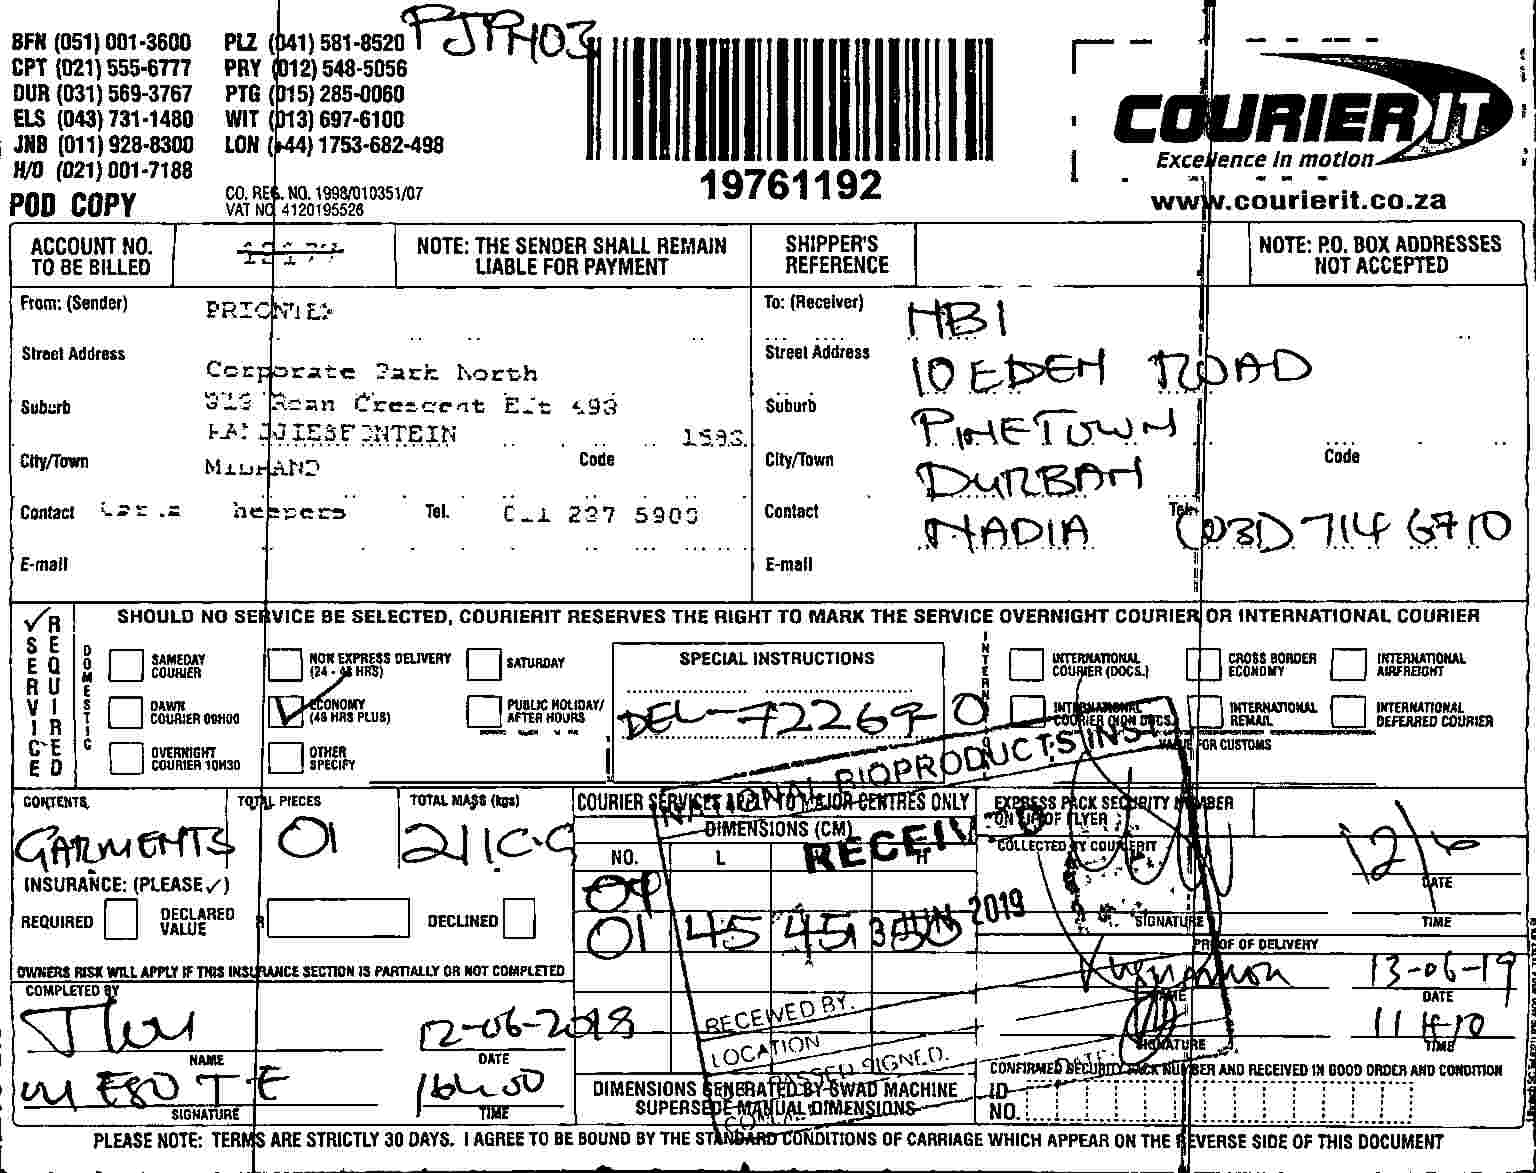 BFN (051) 001-3600 PLZ (041) 581-8520 PJPH03
CPT (021) 555-6777 PRY (012) 548-5056
DUR (031) 569-3767 PTG (015) 285-0060
ELS (043) 731-1480 WIT (013) 697-6100
JNB (011) 928-8300 LON (+44) 1753-682-498
H/O (021) 001-7188
POD COPY
CO. REG. NO. 1998/010351/07
VAT NO. 4120195526
19761192
COURIER IT
Excellence in motion
www.courierit.co.za
ACCOUNT NO. TO BE BILLED
NOTE: THE SENDER SHALL REMAIN LIABLE FOR PAYMENT
SHIPPER'S REFERENCE
NOTE: P.O. BOX ADDRESSES NOT ACCEPTED
From: (Sender)
Street Address Corporate Park North
Suburb
1583
City/Town MIDRAND Code
Contact Tel. 011 237 5900
E-mail
To: (Receiver) HBI
Street Address 10 EDEN ROAD
Suburb PINETOWN
City/Town DURBAN Code
Contact NADIA Tel. (031) 714 6710
E-mail
SERVICE REQUIRED
SHOULD NO SERVICE BE SELECTED, COURIERIT RESERVES THE RIGHT TO MARK THE SERVICE OVERNIGHT COURIER OR INTERNATIONAL COURIER
DOMESTIC
SAMEDAY COURIER
NON EXPRESS DELIVERY (24 - 48 HRS)
SATURDAY
DAWN COURIER 09H00
ECONOMY (48 HRS PLUS)
PUBLIC HOLIDAY/ AFTER HOURS
OVERNIGHT COURIER 10H30
OTHER SPECIFY
SPECIAL INSTRUCTIONS
DEL-72269-0
INTERNATIONAL COURIER (DOCS.)
CROSS BORDER ECONOMY
INTERNATIONAL AIRFREIGHT
INTERNATIONAL COURIER (NON DOCS.)
INTERNATIONAL REMAIL
INTERNATIONAL DEFERRED COURIER
VALUE FOR CUSTOMS
CONTENTS TOTAL PIECES TOTAL MASS (kgs)
GARMENTS 01
INSURANCE: (PLEASE ✓)
REQUIRED DECLARED VALUE R DECLINED
OWNERS RISK WILL APPLY IF THIS INSURANCE SECTION IS PARTIALLY OR NOT COMPLETED
COMPLETED BY
NAME
12-06-2018
DATE
SIGNATURE
16h00
TIME
COURIER SERVICES APPLY TO MAJOR CENTRES ONLY
DIMENSIONS (CM)
NO. L H
01 45 45
DIMENSIONS GENERATED BY SWAD MACHINE SUPERSEDE MANUAL DIMENSIONS
NATIONAL BIOPRODUCTS INST
RECEIVED
JUN 2019
RECEIVED BY:
LOCATION
PASSED SIGNED.
DATE:
EXPRESS PACK SECURITY NUMBER ON LIP OF FLYER
COLLECTED BY COURIERIT
12/6
DATE
SIGNATURE TIME
PROOF OF DELIVERY
13-06-19
NAME DATE
11H10
SIGNATURE TIME
CONFIRMED SECURITY PACK NUMBER AND RECEIVED IN GOOD ORDER AND CONDITION
ID NO.
PLEASE NOTE: TERMS ARE STRICTLY 30 DAYS. I AGREE TO BE BOUND BY THE STANDARD CONDITIONS OF CARRIAGE WHICH APPEAR ON THE REVERSE SIDE OF THIS DOCUMENT